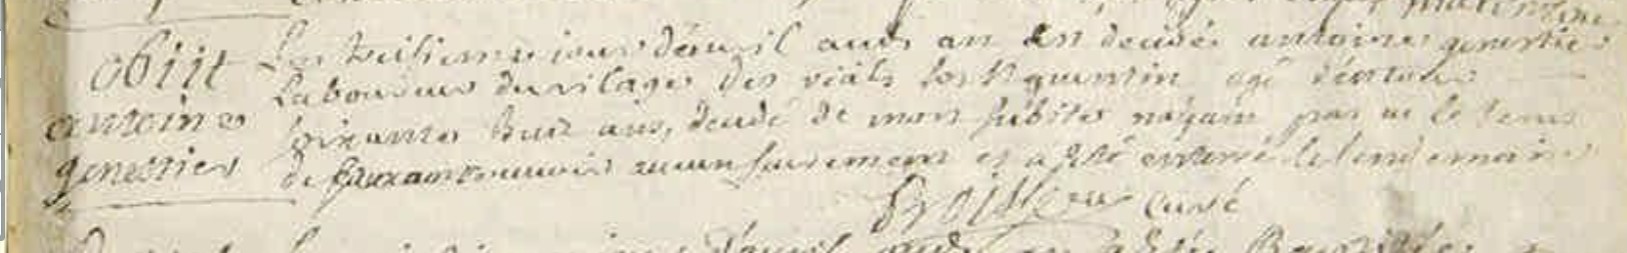 obiit
antoine
genestier
Le huitieme jour d'avril audt an est decedé antoine genestier
Laboureur du vilage des vials de St quentin agé d'environ
soixante huit ans, decedé de mort subite n'ayant pas eu le tems
de recevoir aucun sacrement et a esté enterré le lendemain
curé
d'avril audt an a esté